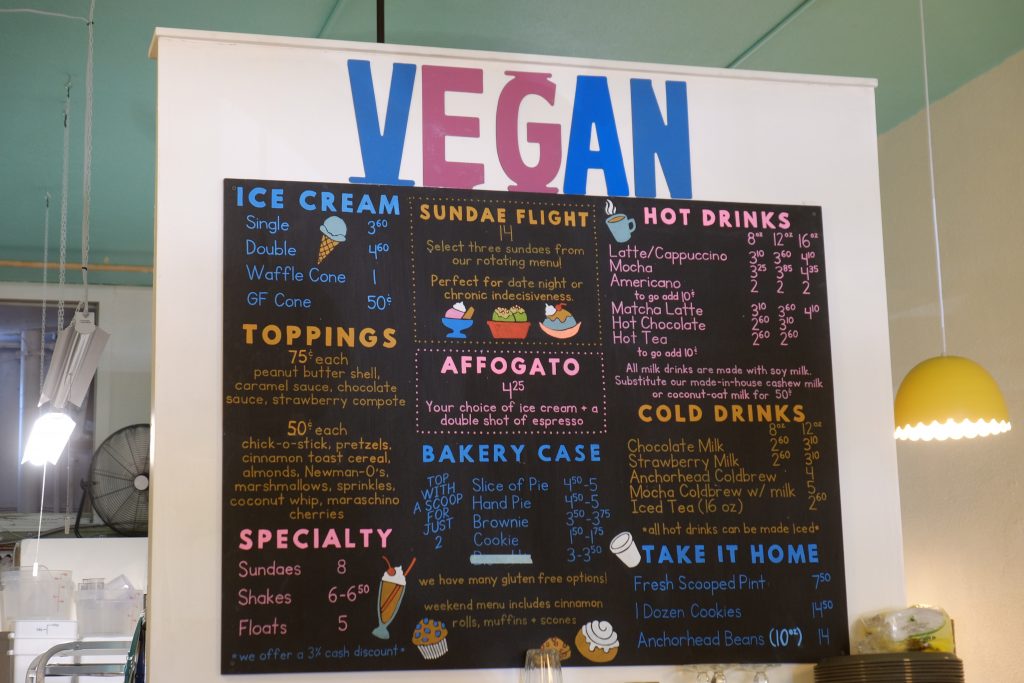 VEGAN
ICE CREAM
Single 3⁶⁰
Double 4⁶⁰
Waffle Cone 1
GF Cone 50¢
TOPPINGS
75¢ each
peanut butter shell,
caramel sauce, chocolate
sauce, strawberry compote
50¢ each
chick-o-stick, pretzels,
cinnamon toast cereal,
almonds, Newman-O's,
marshmallows, sprinkles,
coconut whip, maraschino
cherries
SPECIALTY
Sundaes 8
Shakes 6-6⁵⁰
Floats 5
*we offer a 3% cash discount*
SUNDAE FLIGHT
14
Select three sundaes from
our rotating menu!
Perfect for date night or
chronic indecisiveness.
AFFOGATO
4²⁵
Your choice of ice cream + a
double shot of espresso
BAKERY CASE
TOP
WITH
A SCOOP
FOR
JUST
2
Slice of Pie 4⁵⁰-5
Hand Pie 4⁵⁰-5
Brownie 3⁵⁰-3⁷⁵
Cookie 1⁵⁰-1⁷⁵
3-3⁵⁰
we have many gluten free options!
weekend menu includes cinnamon
rolls, muffins + scones
HOT DRINKS
8oz 12oz 16oz
Latte/Cappuccino 3¹⁰ 3⁶⁰ 4¹⁰
Mocha 3²⁵ 3⁸⁵ 4³⁵
Americano 2 2 2
to go add 10¢
Matcha Latte 3¹⁰ 3⁶⁰ 4¹⁰
Hot Chocolate 2⁶⁰ 3¹⁰
Hot Tea 2 2
to go add 10¢
All milk drinks are made with soy milk.
Substitute our made-in-house cashew milk
or coconut-oat milk for 50¢
COLD DRINKS
8oz 12oz
Chocolate Milk 2⁶⁰ 3¹⁰
Strawberry Milk 2⁶⁰ 3¹⁰
Anchorhead Coldbrew 4
Mocha Coldbrew w/ milk 5
Iced Tea (16 oz) 2⁶⁰
*all hot drinks can be made iced*
TAKE IT HOME
Fresh Scooped Pint 7⁵⁰
1 Dozen Cookies 14⁵⁰
Anchorhead Beans (10oz) 14